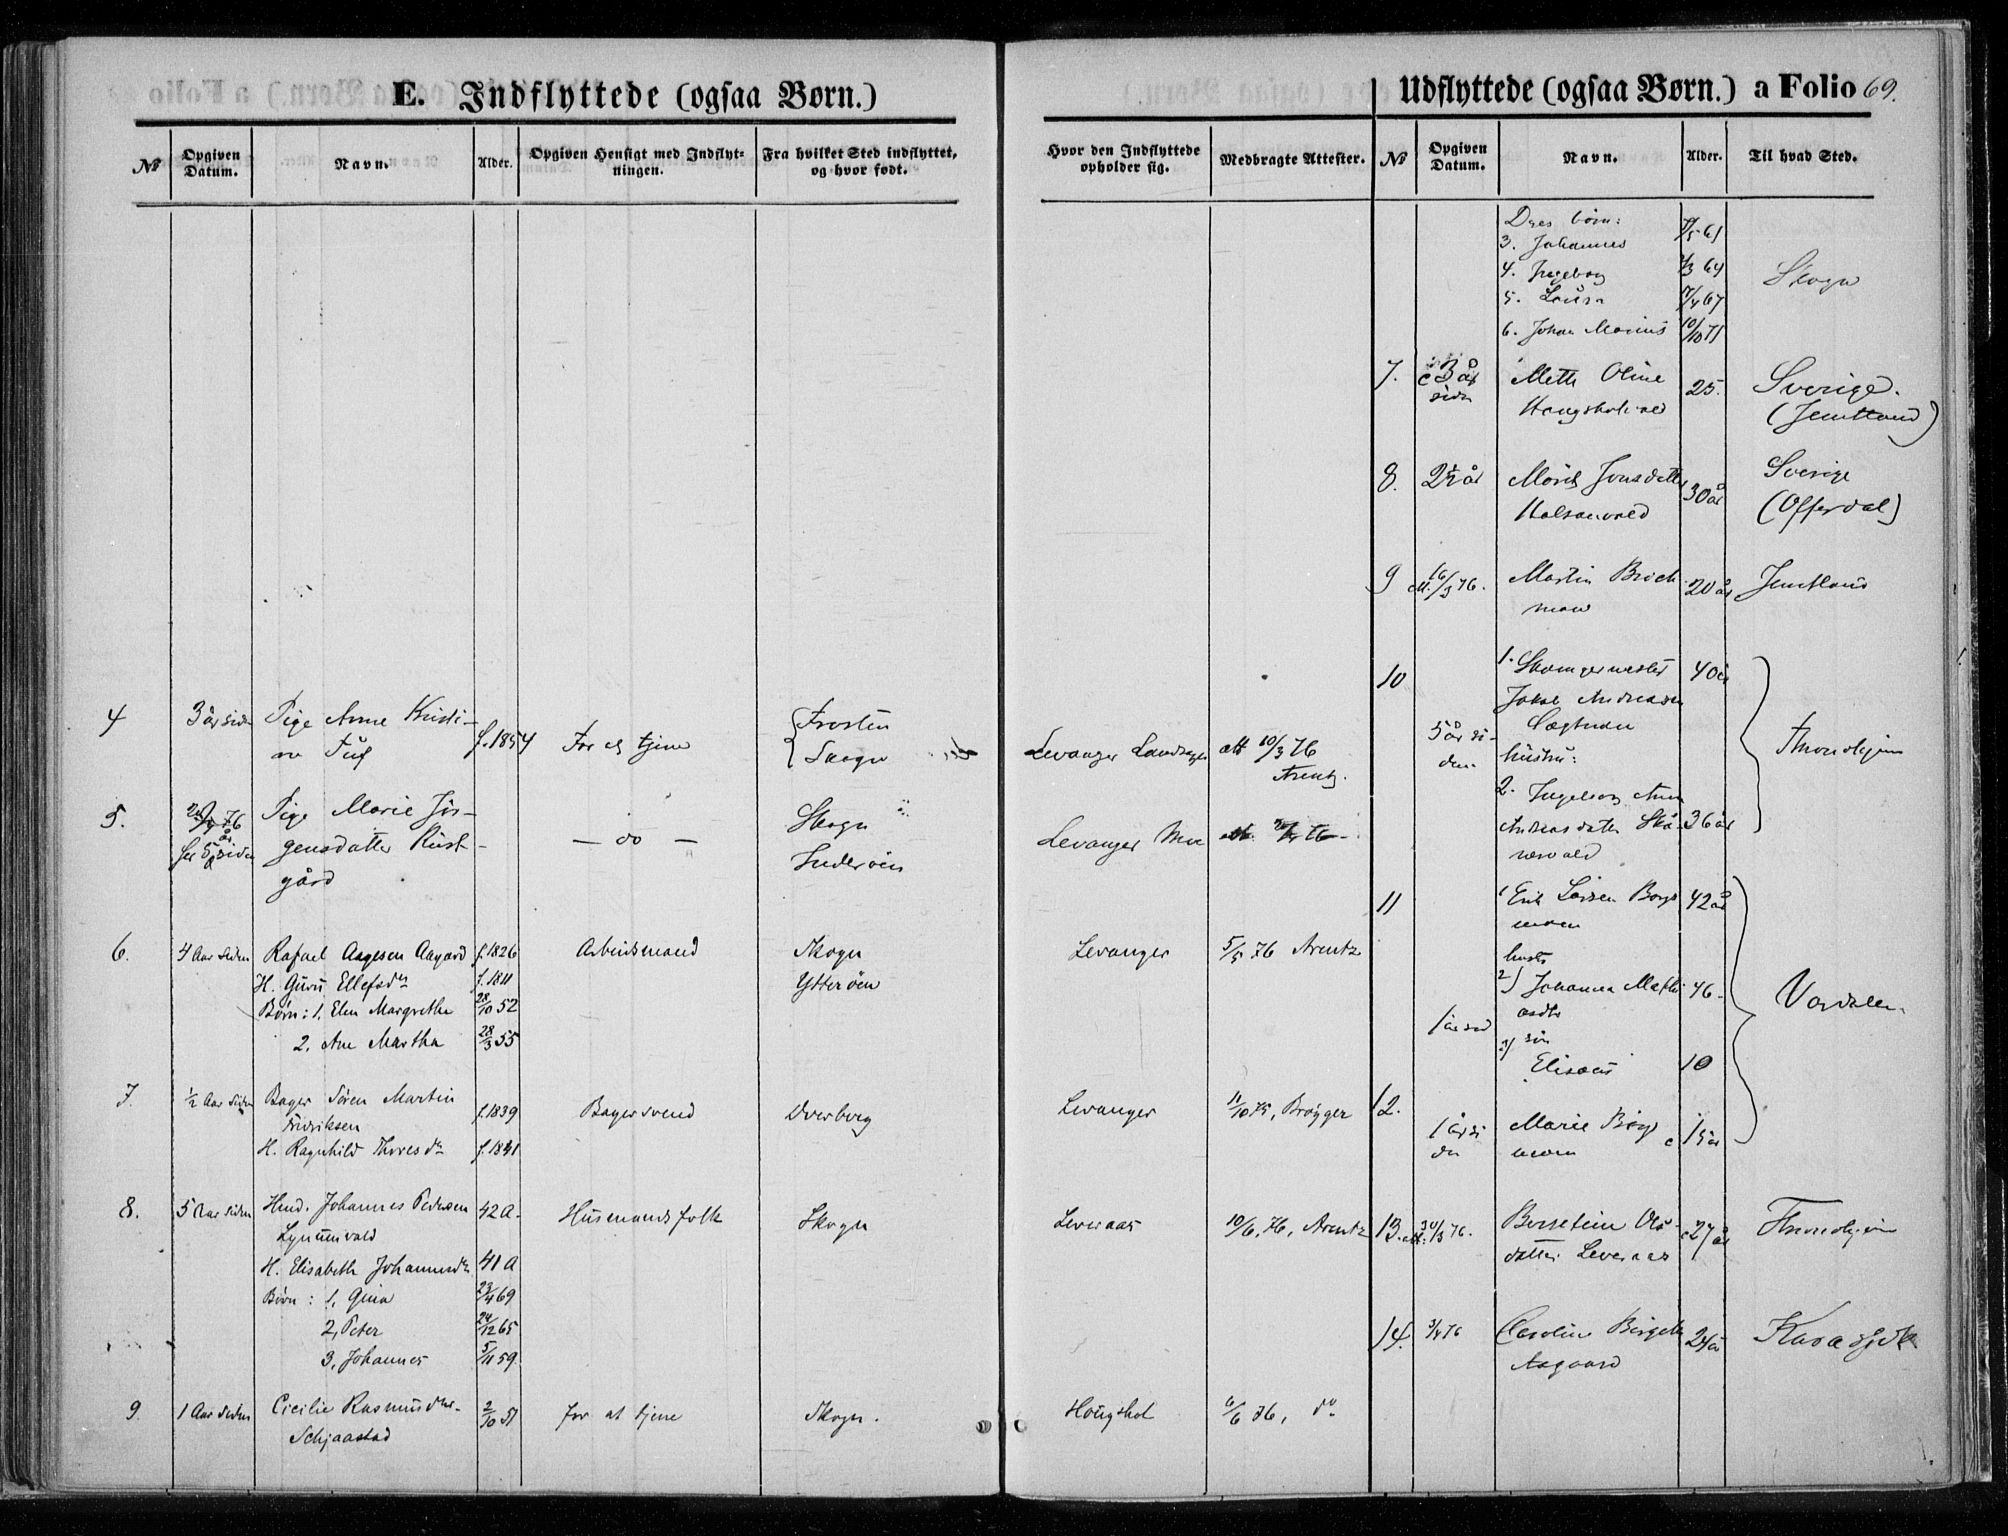 E. Indflyttede (ogsaa Børn.)
№ Opgiven Datum. Navn. Alder. Opgiven Hensigt med Indflytningen. Fra hvilket Sted indflyttet, og hvor født.
4 3 år siden Pige Anne Kristi- f. 1854 For at tjene Frosten
Skogn
5. Pige Marie Jör- — do — Skogn
for 5 år siden gensdatter Rust- Inderöen
gård
6. 4 Aar siden Rafael Aagesen Aagard f. 1826 Arbeidsmand Skogn
H. Guru Ellefsdr f. 1811 Ytterøen
Børn: 1, Elen Margrethe 28/10 52
2, Ane Martha 28/3 55
7. 1/2 Aar siden Bager Sören Martin f. 1839 Bagersvend Overberg
Fridriksen
H. Ragnhild Thoresdr f. 1841
8. 5 Aar siden Husmd. Johannes Pedersen 42 A. Husmandsfolk Skogn
H. Elisabeth Johannesdr 41 A
Børn: 1, Gina 23/4 69
2, Peter 24/12 65
3, Johannes 5/11 59
9 1 Aar siden Cicilie Rasmusdtr. 2/10 51 for at tjene Skogn.
Schjaastad
Hvor den Indflyttede opholder sig. Medbragte Attester.
Levanger att 10/3 76
Arentz.
Levanger Moe
Levanger 5/5 76 Arentz
Levanger 11/10 75, Brøgger
Leveraas 10/6, 76, Arentz
Hougskot 6/6 76, do
Udflyttede (ogsaa Børn.) a Folio 69.
№ Opgiven Datum. Navn. Alder. Til hvad Sted.
Deres börn:
3. Johannes 61
4. Ingeborg 64 Skogn
5. Laura 67
6. Johan Marius 10/10 71
7. c 3 år siden Mette Oline 25. Sverige.
(Jemtland)
8. 2½ år Marit Jonsdatter 30 år Sverige
Halsanvald (Offerdal)
9 att. 16/3 76. Martin Brech- 20 år Jemtland
man
10 1. Skomagermester 40 år
Jakob Andreasen
5 år si-
den hustru: Throndhjem
2. Ingeborg Anna
Andreasdatter Skå- 36 år
nesvald
11 1 Erik Larsen Borgs 42 år
moen
hustr
2) Johanna Mathi- 46
asdtr Værdalen
1 år sid
3) sön
Elisæus 10
12. 1 år si- Marie Borgs c 15 år
den moen
13. att. 30/3 76. Berntine Ols- c 27 år Throndhjem
datter Leveraas
14. 3/4 76 Caroline Birgitte 24 år Karasjok
Aagaard